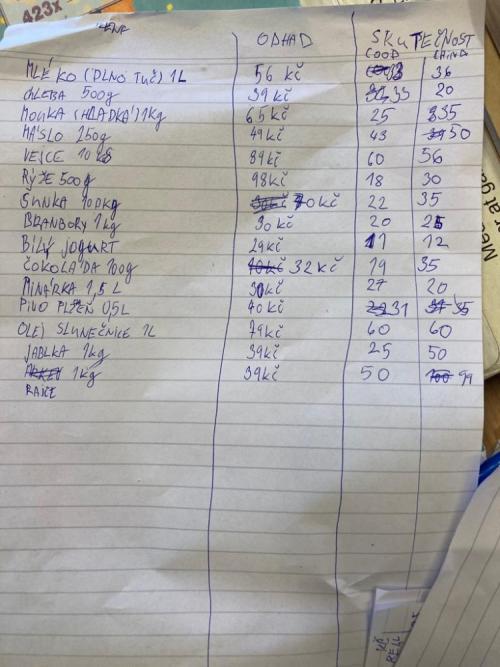 423x
ODHAD SKUTEČNOST
COOP
MLÉKO (PLNO TUČ) 1L 56 kč 36
CHLEBA 500g 39 kč 33 20
MOUKA (HLADKÁ) 1kg 65 kč 25 35
MÁSLO 250g 49 kč 43 50
VEJCE 10 kS 89 kč 60 56
RÝŽE 500g 98 kč 18 30
ŠUNKA 100kg 70 kč 22 35
BRANBORY 1kg 30 kč 20 25
BÍLÝ JOGURT 29 kč 11 12
ČOKOLÁDA 100g 32 kč 19 35
MINÁRKA 1,5 L 30 kč 27 20
PIVO PLZEŇ 0,5L 40 kč 31 35
OLEJ SLUNEČNICE 1L 79 kč 60 60
JABLKA 1kg 39 kč 25 50
1kg 39 kč 50 99
RAJČE